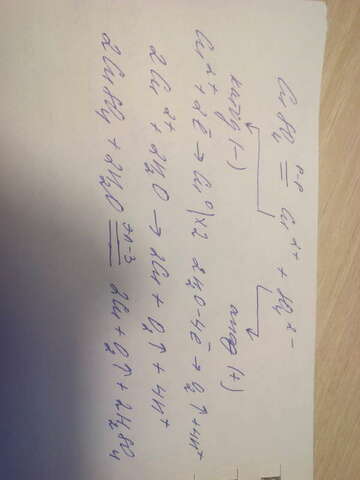 CuSO₄ =р-р= Cu²⁺ + SO₄²⁻
катод (-) анод (+)
Cu²⁺ + 2ē → Cu⁰ | ×2 2H₂O - 4ē → O₂↑ + 4H⁺
2Cu²⁺ + 2H₂O → 2Cu + O₂↑ + 4H⁺
2CuSO₄ + 2H₂O =эл-з= 2Cu + O₂↑ + 2H₂SO₄